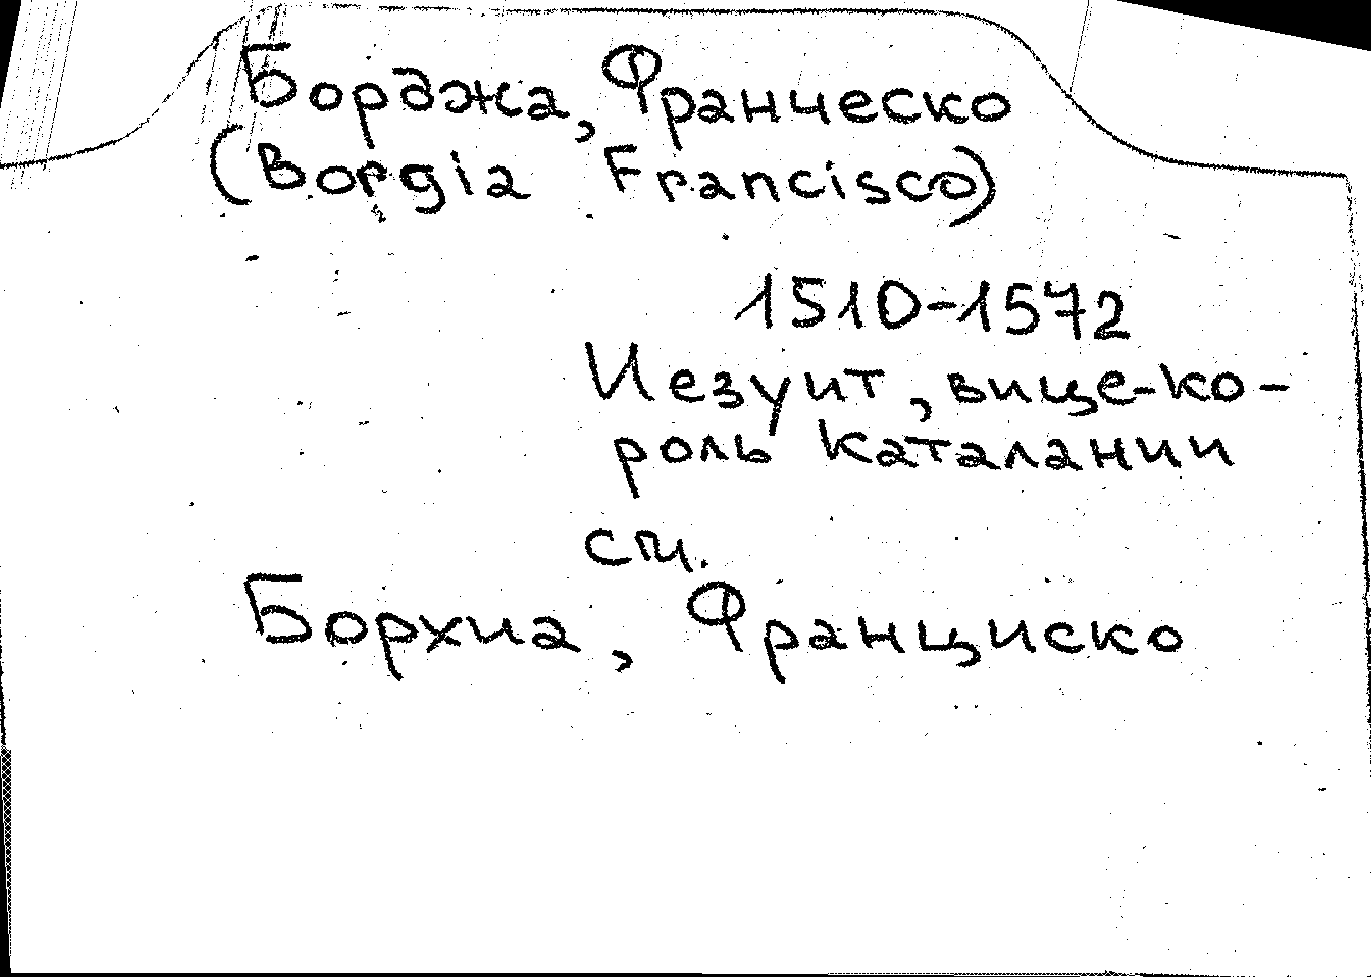 Борджа, Франческо
(Borgia Francisco)
1510-1572
Иезуит, вице-ко-
роль Каталании
см.
Борхиа, Франциско